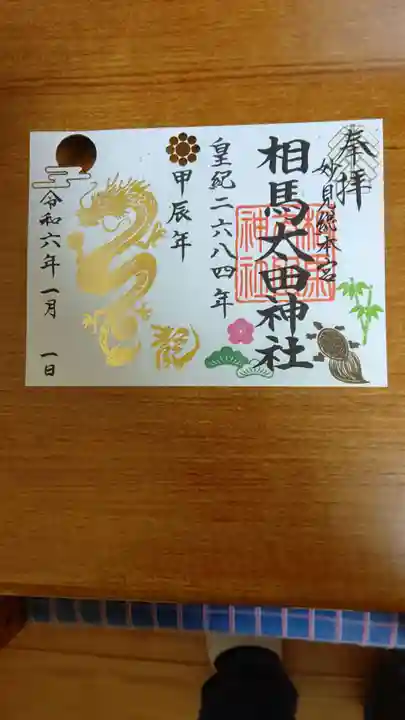 奉拝
妙見総本宮
相馬太田神社
皇紀二六八四年
甲辰年
龍
令和六年一月一日